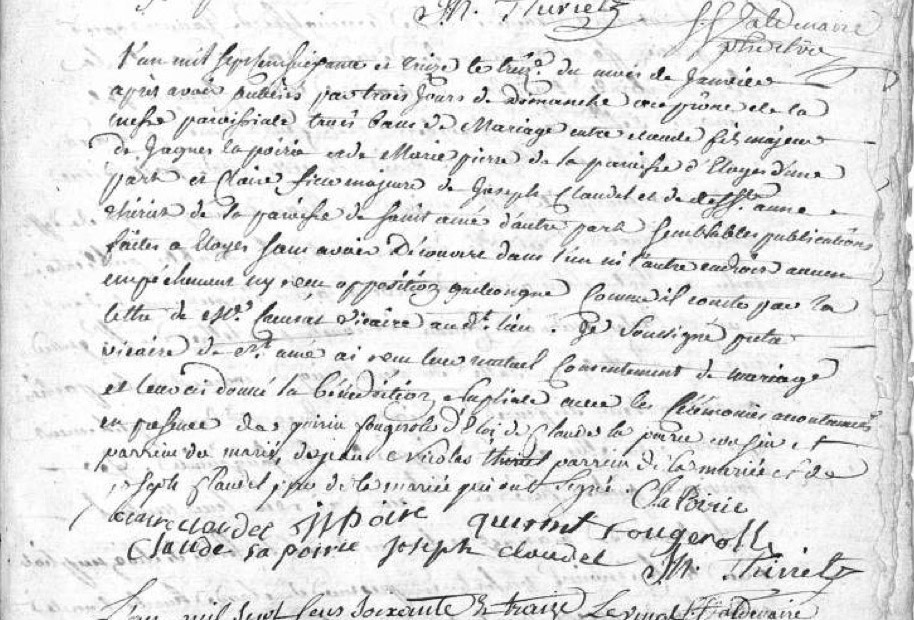 M. Thiriet
Valdenaire
L'an mil sept cens soixante et treize le treize du mois de Janvier
après avoir publiés par trois jours de Domanche au prône de la
messe paroissiale trois bans de Mariage entre claude fils majeur
de Jaques la poirie et de Marie pierre de la paroisse d'Eloyes d'une
part et Claire fille majeure de Joseph Claudel et de deffte anne
thiriet de la paroisse de saint amé d'autre part semblables publications
faites a Eloyes sans avoir Découvert dans l'un ni l'autre endroit aucun
empéchement ny reçu opposition quelconque comme il conste par la
lettre de Mr. vicaire audt. lieu. Je soussigné
vicaire de st. amé ai reçu leur mutuel Consentement de mariage
et leur ai donné la bénédiction nuptiale avec les Cérémonies accoutumées
en presence de fougerole d'Eloi de Claude la poirie cousin et
parrein du marié, de jean nicolas thiriet parrein de la mariée et de
joseph Claudel pere de la mariée qui ont signé. C la Poirie
claire claudel J poirie quirint fougerolle
Claude la poirie joseph claudel M. Thiriet
L'an mil sept cens soixante et treize Le vingt Valdenaire